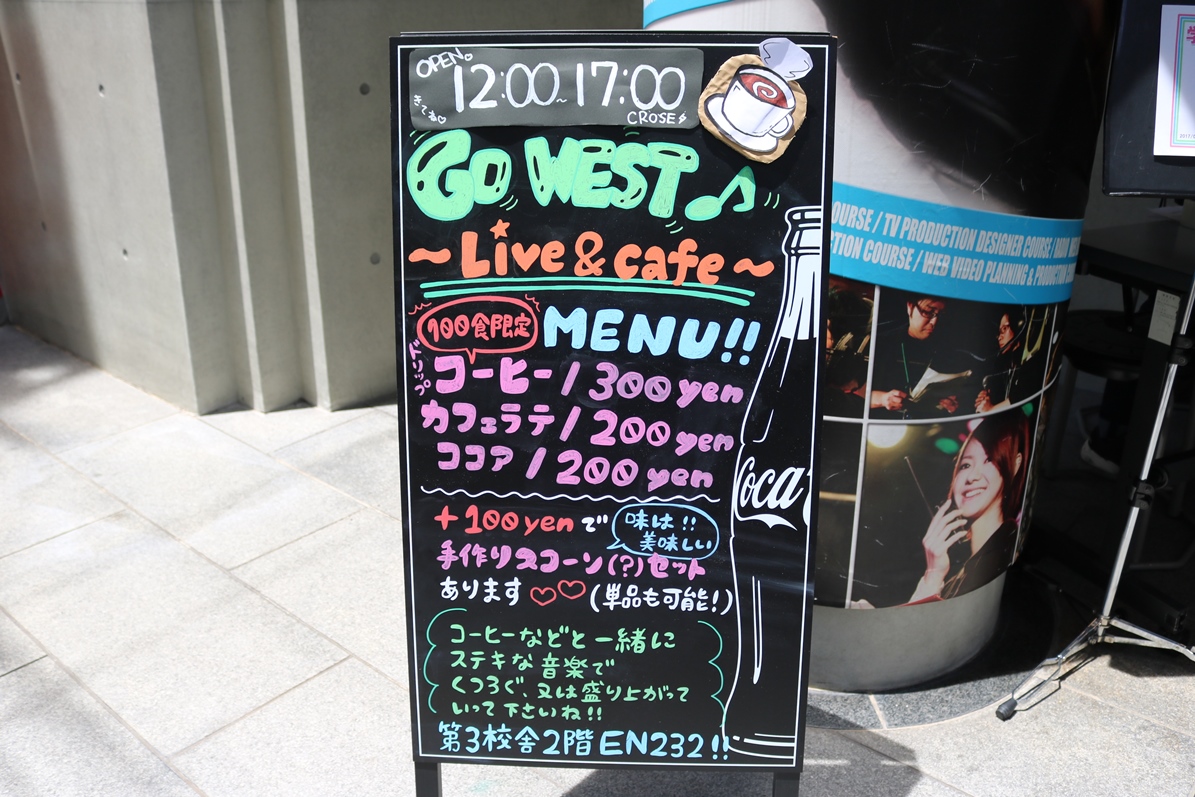 OPEN。
12:00~17:00
きてね♡
CROSE
GO WEST♪
~Live & cafe~
100食限定
MENU!!
ドリップ
コーヒー/300yen
カフェラテ/200yen
ココア/200yen
+100yenで
味は!!
美味しい
手作りスコーン(?)セット
あります♡♡(単品も可能!)
コーヒーなどと一緒に
ステキな音楽で
くつろぐ、又は盛り上がって
いって下さいね!!
第3校舎2階EN232!!
Coca
COURSE / TV PRODUCTION DESIGNER COURSE /
CTION COURSE / WEB VIDEO PLANNING & PRODUCTION